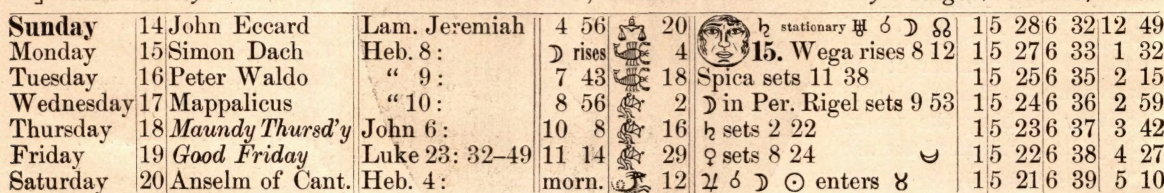 Sunday 14 John Eccard Lam. Jeremiah 4 56 ♎ 20 ♄ stationary ♅ ☌ ☽ ☊ 1 5 28 6 32 12 49
Monday 15 Simon Dach Heb. 8: ☽ rises ♏ 4 15. Wega rises 8 12 1 5 27 6 33 1 32
Tuesday 16 Peter Waldo “ 9: 7 43 ♏ 18 Spica sets 11 38 1 5 25 6 35 2 15
Wednesday 17 Mappalicus “ 10: 8 56 ♐ 2 ☽ in Per. Rigel sets 9 53 1 5 24 6 36 2 59
Thursday 18 Maundy Thursd'y John 6: 10 8 ♐ 16 ♄ sets 2 22 1 5 23 6 37 3 42
Friday 19 Good Friday Luke 23: 32–49 11 14 ♐ 29 ♀ sets 8 24 1 5 22 6 38 4 27
Saturday 20 Anselm of Cant. Heb. 4: morn. ♑ 12 ♃ ☌ ☽ ☉ enters ♉ 1 5 21 6 39 5 10